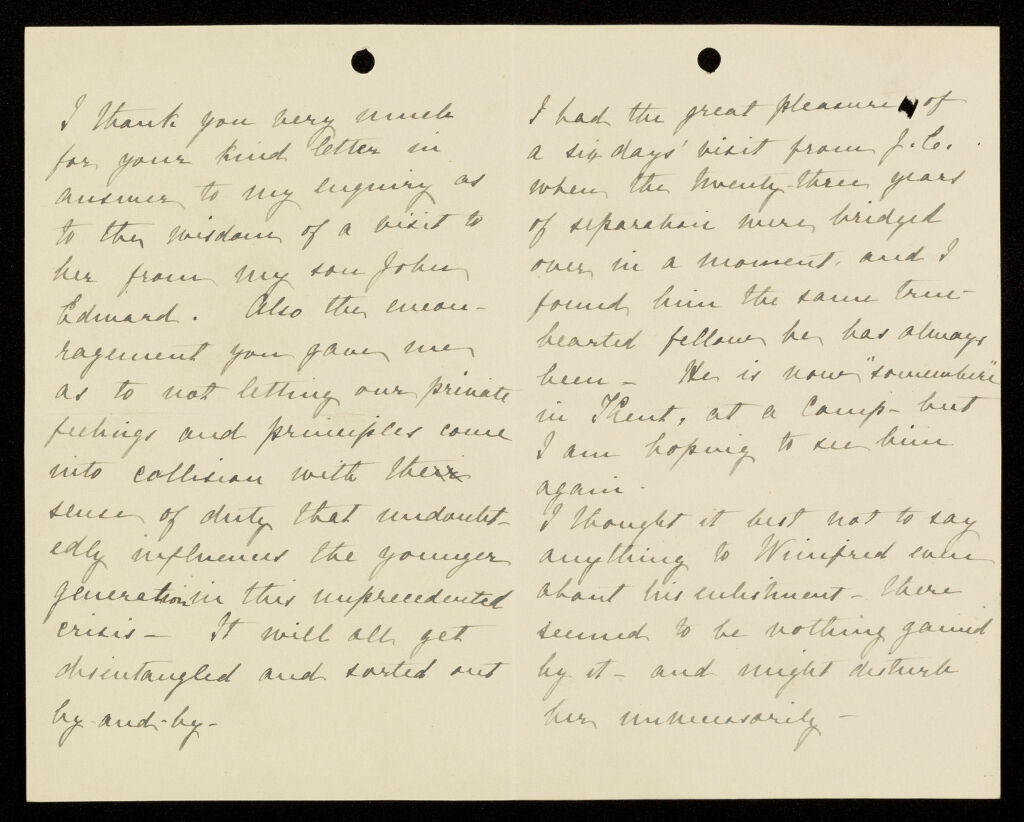 I thank you very much
for your kind letter in
answer to my enquiry as
to the wisdom of a visit to
her from my son John
Edward. Also the encou-
ragement you gave me
as to not letting our private
feelings and principles come
into collision with the
sense of duty that undoubt-
edly influences the younger
generation in this unprecedented
crisis - It will all get
disentangled and sorted out
by-and-by-
I had the great pleasure of
a six days' visit from J.E.
when the twenty-three years
of separation were bridged
over in a moment, and I
found him the same true-
hearted fellow he has always
been - He is now "somewhere"
in Kent, at a Camp - but
I am hoping to see him
again.
I thought it best not to say
anything to Winifred even
about his enlishment - there
seemed to be nothing gained
by it - and might disturb
her unnecessarily -